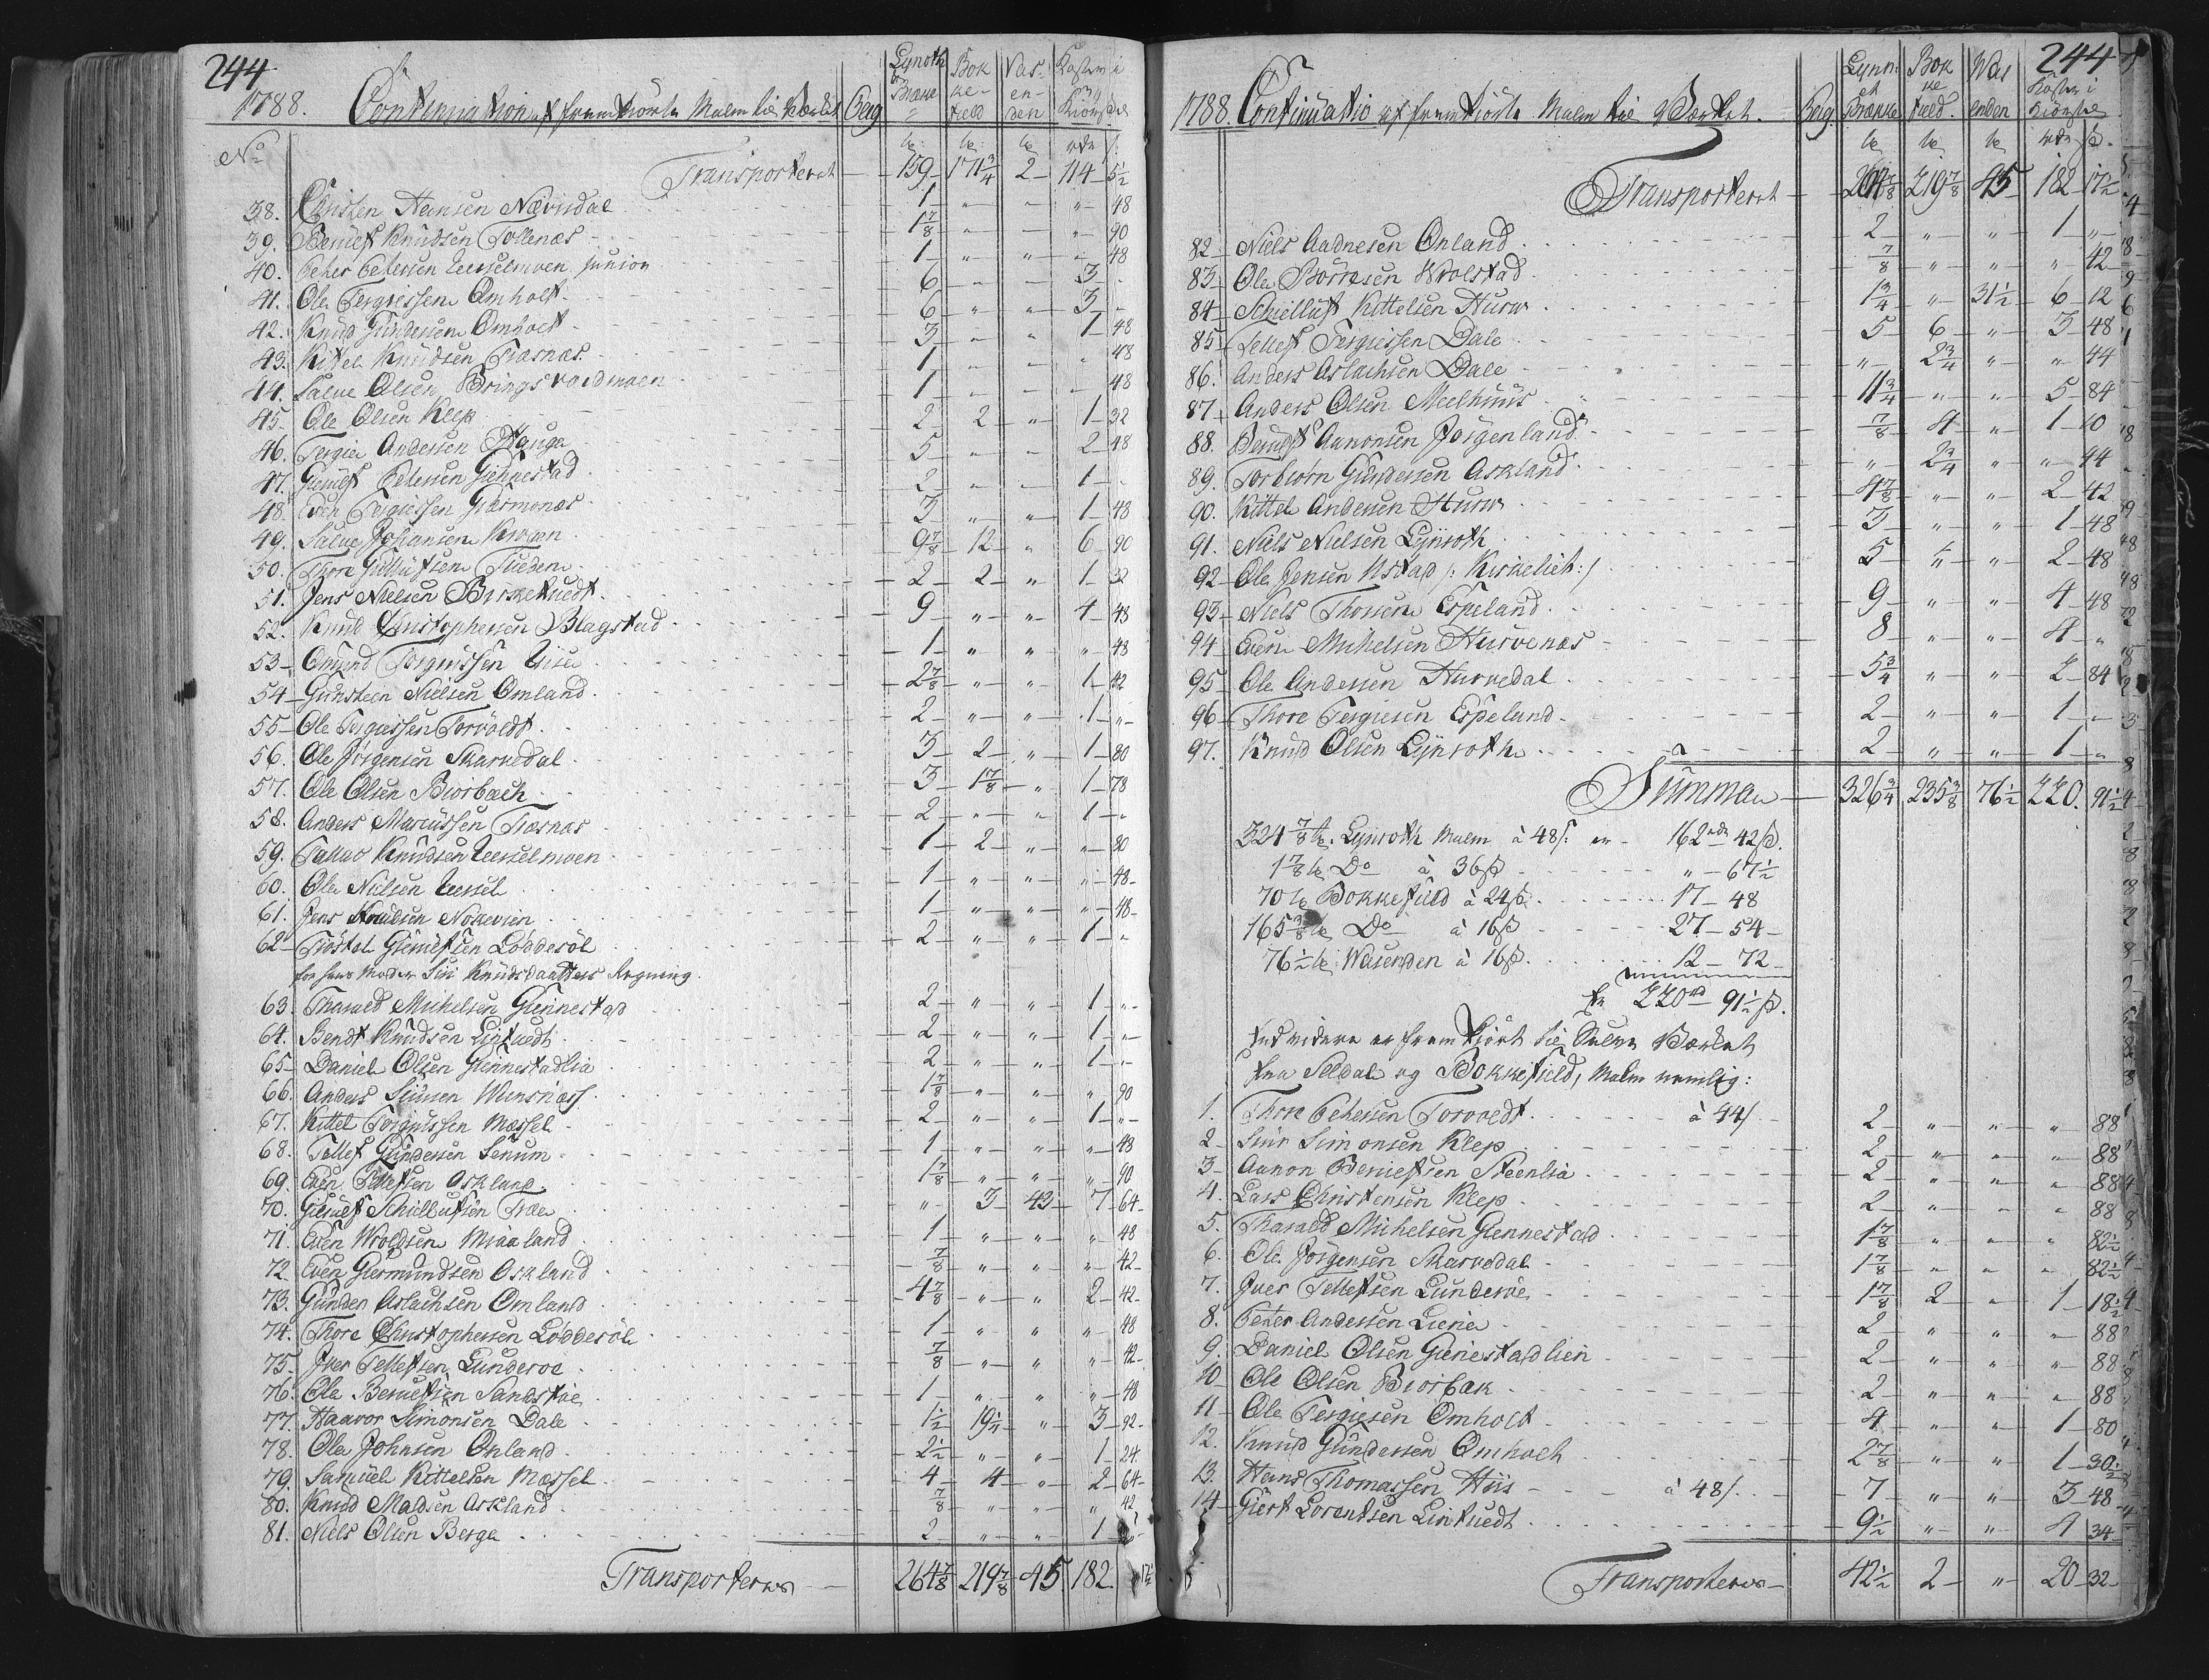 244
1788. Continuation af fremkiörte Malm til Værket Berg Lynroth Brække Bokkefield Vasenden Kosten i Kiörsel
No tr: tr: tr rdr s.
Transporteret 159 171 3/4 2 114 5 1/2
38. Christen Hansen Nævisdal 1 " " " 48
39. Beruelf Knudsen Tollenæs 1 7/8 " " " 90
40. Peter Petersen Uesselmoen junior 1 " " " 48
41. Ole Tergiessen Omholt 6 " " 3 "
42. Knud Gundersen Omholt 6 " " 3 "
43. Kittel Knudsen Træsnæs 3 " " 1 48
44. Salve Olsen Bringsværdmoen 1 " " " 48
45. Ole Olsen Klep 1 " " " 48
46. Tergie Andersen Hauga 2 2 " 1 32
47. Giewelf Petersen Giennestad 5 " " 2 48
48. Even Tergiessen Giermonæs 2 " " 1 "
49. Salve Johansen Krogen 3 " " 1 48
50. Thore Gullufsen Tveden 9 7/8 12 " 6 90
51. Jens Nielsen Birketuedt 2 2 " 1 32
52. Knud Christophersen Blagstad 9 " " 4 48
53. Omund Torgiussen Uisa 1 " " " 48
54 Gunsteen Nielsen Omland 2 7/8 " " 1 42
55 Ole Tergiessen Torvoldt 2 " " 1 "
56. Ole Jörgensen Skarvedal 3 2 " 1 80
57. Ole Olsen Biorbach 3 1 7/8 " 1 78
58. Anders Marcussen Træsnæs 2 " " 1 "
59. Tallac Knudsen Uesselmoen 1 2 " " 80
60. Ole Nielsen Uessel 1 " " " 48
61. Jens Knudsen Nokevien 1 " " " 48
62 Tröstel Glemetsen Löddesöl 2 " " 1 "
for hans Moder Siri Knudsdatters Regning.
63. Tharald Michelsen Giennestad 2 " " 1 "
64. Bendt Knudsen Lintuedt 2 " " 1 "
65 Daniel Olsen Giennestadlia 2 " " 1 "
66. Anders Siursen Wensnæss 1 7/8 " " " 90
67. Kittel Torgiussen Messel 2 " " 1 "
68. Tellef Gundersen Senum 1 " " " 48
69. Even Tellefsen Oskland 1 7/8 " " " 90
70. Giewelf Schiellufsen Træe " 3 43 7 64
71. Even Wroldsen Miaaland 1 " " " 48
72 Even Giermundsen Oskland 7/8 " " " 42
73. Gunder Aslachsen Omland 4 7/8 " " 2 42
74. Thore Christophersen Löddesöl 1 " " " 48
75. Jver Tellefsen Lunderoe 7/8 " " " 42
76. Ole Beruelfsen Sandstöe 1 " " " 48
77. Haavor Simonsen Dale 1 1/2 19 1/4 " 3 92
78. Ole Johnsen Onland 2 1/2 " " 1 24
79. Samuel Kittelsen Messel 4 4 " 2 64
80. Knud Madsen Askland 7/8 " " " 42
81. Niels Olsen Berge 2 " " 1
Transporteres 264 7/8 219 7/8 45 182. 17 1/2
244
1788. Continuatio af fremkiörte Malm til Værket. Berg. Lynroth Brække Bokkefield. Wasenden Kosten i Kiörsel
tr tr tr rdr s.
Transporteret 264 7/8 219 7/8 45 182 17 1/2
82 Niels Aadnesen Onland 2 " " 1 "
83 Ole Borresen Wrolstad 7/8 " " " 42
84 Schielluf Kittelsen Hurw 1 3/4 " 31 1/2 6 12
85 Tellef Tergiessen Dale 5 6 " 3 48
86. Anders Aslachsen Dale " 2 3/4 " " 44
87 Anders Olsen Meelhuus 11 3/4 " " 5 84
88. Beruelf Aanonsen Jorgenland 7/8 4 " 1 10
89. Torbiörn Gundersen Askland " 2 3/4 " " 44
90. Kittel Andersen Hurw 4 7/8 " " 2 42
91. Niels Nielsen Lynroth 3 " " 1 48
92 Ole Jensen Ustad /: Kirkelieh :/ 5 " " 2 48
93 Niels Thorsen Espeland 9 " " 4 48
94 Even Michelsen Hurvenæs 8 " " 4 "
95 Ole Andersen Hurvedal 5 3/4 " " 2 84
96 Thore Tergiesen Espeland 2 " " 1 "
97. Knud Olsen Lynroth 2 " " 1 "
Summa 326 3/4 235 3/8 76 1/2 220. 91 1/2
324 7/8 tr. Lynroth Malm à 48 s. er 162 rdr 42 s.
1 7/8 tr Do à 36 s " 67 1/2
70 tr Bokkefield à 24 s 17 48
165 3/8 tr Do à 16 s 27 54
76 1/2 tr Wasenden à 16 s. 12 72
er 220 rd 91 1/2 s.
End videre er fremkiört til Selve Værket
fra Seldal og Bokkefield, Malm nemlig:
1. Thore Petersen Torvedt à 44 s 2 " " " 88
2 Siur Simonsen Klep 2 " " " 88
3 Aanon Beruelfsen Steenlia 2 " " " 88
4. Lars Christensen Klep 2 " " " 88
5. Tharald Michelsen Giennestad 1 7/8 " " " 82 1/2
6. Ole Jörgensen Skarvedal 1 7/8 " " " 82 1/2
7. Jver Tellefsen Lunderöe 1 7/8 2 " 1 18 1/2
8. Peter Anderssen Lierie 2 " " " 88
9. Daniel Olsen Gienestadlien 2 " " " 88
10 Ole Olsen Biorbak 2 " " " 88
11 Ole Tergiesen Omholt 4 " " 1 80
12. Knud Gundersen Omholt 2 7/8 " " 1 30 1/2
13. Hans Thomassen Hiis à 48 s. 7 " " 3 48
14 Giert Lorentsen Lintuedt 9 1/2 " " 4 34
Transporteres 42 1/2 2 " 20 32